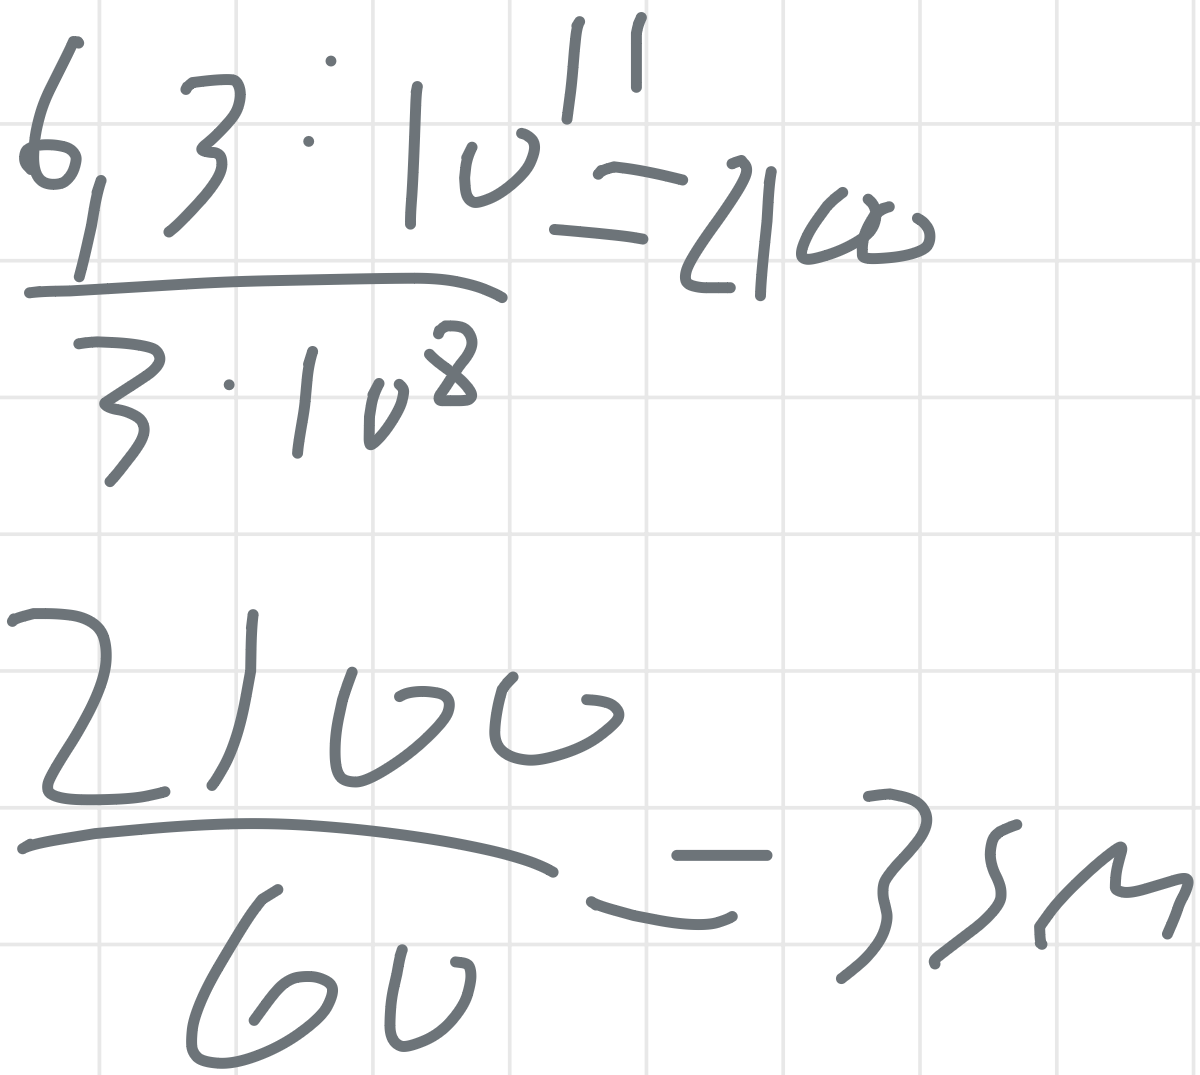 6,3 · 10¹¹ / 3 · 10⁸ = 2100
2100 / 60 = 35м